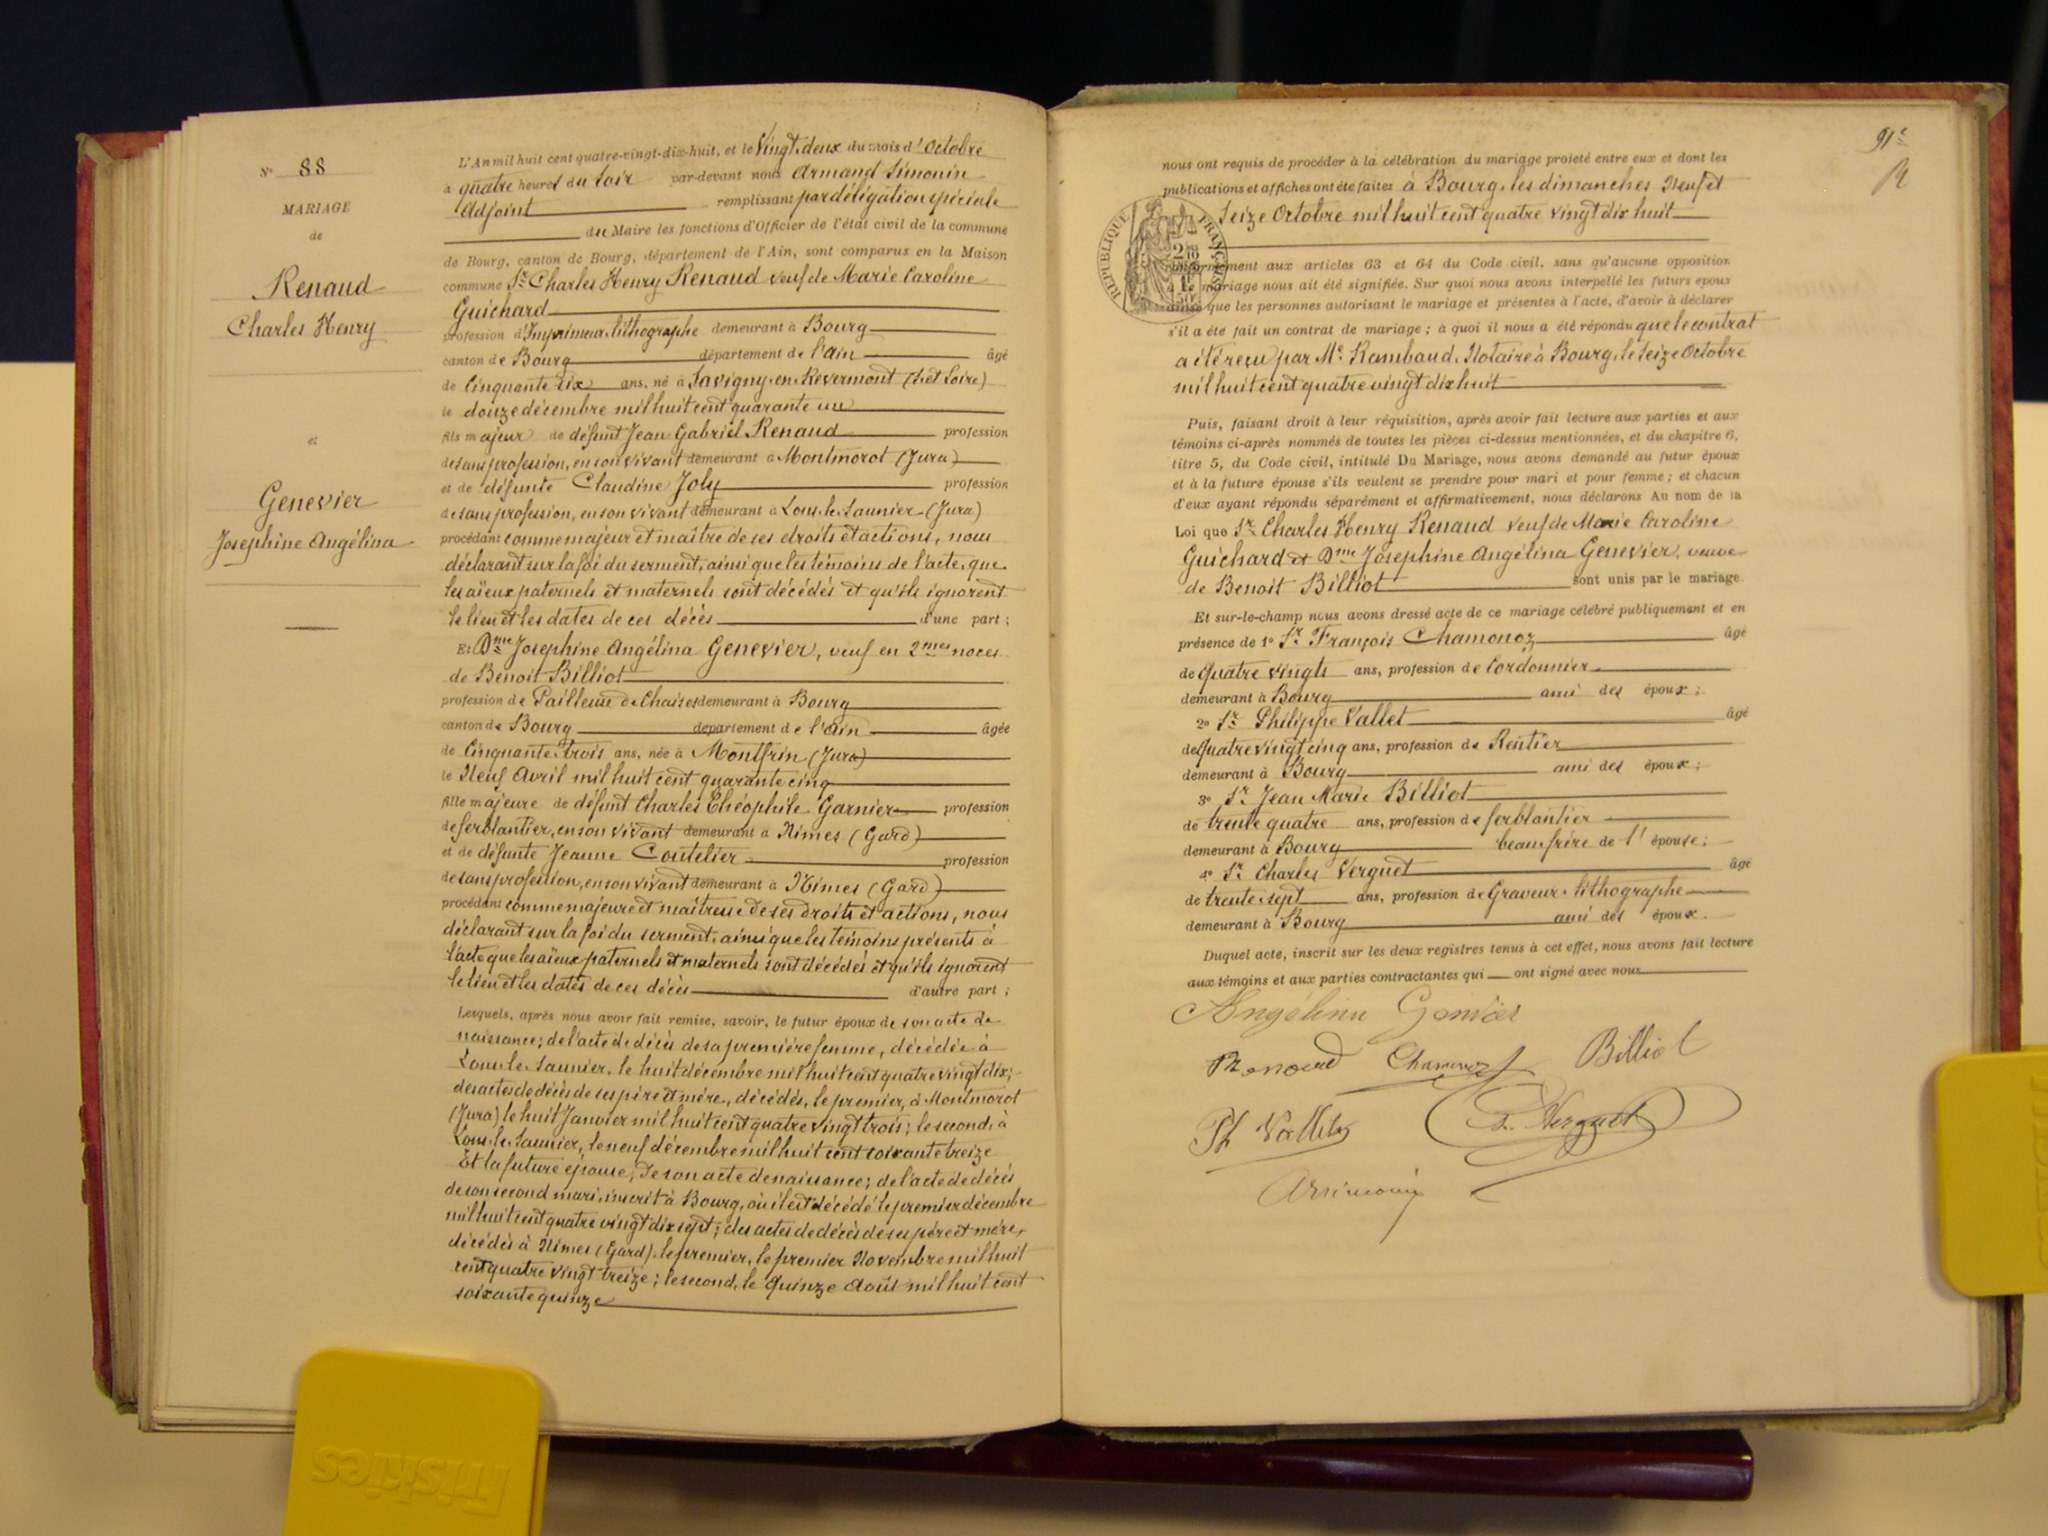 N° 88
MARIAGE
de
Renaud
Charles Henry
et
Genevier
Josephine Angélina
L'An mil huit cent quatre-vingt-dix-huit, et le Vingt-deux du mois d'Octobre
à quatre heures du soir par-devant nous Armand Simonin
Adjoint remplissant par délégation spéciale
du Maire les fonctions d'Officier de l'état civil de la commune
de Bourg, canton de Bourg, département de l'Ain, sont comparus en la Maison
commune Sr Charles Henry Renaud veuf de Marie Caroline
Guichard
profession d'Imprimeur lithographe demeurant à Bourg
canton de Bourg département de l'ain âgé
de Cinquante six ans, né à Savigny-en-Revermont (S et Loire)
le douze décembre mil huit cent quarante un
fils majeur de défunt Jean Gabriel Renaud profession
de sans profession, en son vivant demeurant à Montmorot (Jura)
et de défunte Claudine Joly profession
de sans profession, en son vivant demeurant à Lons-le-Saunier (Jura)
procédant comme majeur et maître de ses droits et actions, nous
déclarant sur la foi du serment, ainsi que les témoins de l'acte, que
les aïeux paternels et maternels sont décédés et qu'ils ignorent
le lieu et les dates de ces décès d'une part;
Et Dme Josephine Angélina Genevier, veuf en 2mes noces
de Benoit Billiot
profession de Pailleuse de Chaises demeurant à Bourg
canton de Bourg département de l'ain âgée
de Cinquante trois ans, née à Montfrin (Jura)
le Neuf Avril mil huit cent quarante cinq
fille majeure de défunt Charles Théophile Garnier profession
de ferblantier, en son vivant demeurant à Nimes (Gard)
et de défunte Jeanne Coutelier profession
de sans profession, en son vivant demeurant à Nîmes (Gard)
procédant comme majeure et maîtresse de ses droits et actions, nous
déclarant sur la foi du serment, ainsi que les témoins présents à
l'acte que les aïeux paternels et maternels sont décédés et qu'ils ignorent
le lieu et les dates de ces décès d'autre part;
Lesquels, après nous avoir fait remise, savoir, le futur époux de son acte de
naissance; de l'acte de décès de sa première femme, décédée à
Lons-le-Saunier, le huit décembre mil huit cent quatre vingt dix;
des actes de décès de ses père et mère, décédés, le premier, à Montmorot
(Jura) le huit Janvier mil huit cent quatre vingt trois; le second, à
Lons-le-Saunier, le neuf décembre mil huit cent soixante treize
Et la future épouse, de son acte de naissance; de l'acte de décès
de son second mari, inscrit à Bourg, où il est décédé le premier décembre
mil huit cent quatre vingt dix sept; des actes de décès de ses père et mère,
décédés à Nîmes (Gard), le premier, le premier Novembre mil huit
cent quatre vingt treize; le second, le quinze Août mil huit cent
soixante quinze
91e
nous ont requis de procéder à la célébration du mariage projeté entre eux et dont les
publications et affiches ont été faites à Bourg, les dimanches Neuf et
Seize Octobre mil huit cent quatre vingt dix huit
RÉPUBLIQUE FRANÇAISE
conformément aux articles 63 et 64 du Code civil, sans qu'aucune opposition
à ce mariage nous ait été signifiée. Sur quoi nous avons interpellé les futurs époux
ainsi que les personnes autorisant le mariage et présentes à l'acte, d'avoir à déclarer
s'il a été fait un contrat de mariage; à quoi il nous a été répondu que le contrat
a été reçu par Me Rambaud, Notaire à Bourg, le Seize Octobre
mil huit cent quatre vingt dix huit
Puis, faisant droit à leur réquisition, après avoir fait lecture aux parties et aux
témoins ci-après nommés de toutes les pièces ci-dessus mentionnées, et du chapitre 6,
titre 5, du Code civil, intitulé Du Mariage, nous avons demandé au futur époux
et à la future épouse s'ils veulent se prendre pour mari et pour femme; et chacun
d'eux ayant répondu séparément et affirmativement, nous déclarons Au nom de la
Loi que Sr Charles Henry Renaud veuf de Marie Caroline
Guichard et Dme Josephine Angélina Genevier, veuve
de Benoit Billiot sont unis par le mariage.
Et sur-le-champ nous avons dressé acte de ce mariage célébré publiquement et en
présence de 1° Sr François Chamonoz âgé
de Quatre vingts ans, profession de Cordonnier
demeurant à Bourg ami des époux;
2° Sr Philippe Vallet âgé
de Quatre vingt cinq ans, profession de Rentier
demeurant à Bourg ami des époux;
3° Sr Jean Marie Billiot
de trente quatre ans, profession de ferblantier
demeurant à Bourg beau-frère de l'épouse;
4° Sr Charles Verguet âgé
de trente sept ans, profession de Graveur-lithographe
demeurant à Bourg ami des époux.
Duquel acte, inscrit sur les deux registres tenus à cet effet, nous avons fait lecture
aux témoins et aux parties contractantes qui ont signé avec nous
Angélina
Renaud Chamonoz Billiot
Ph Vallet Verguet
Arsimonin
Friskies